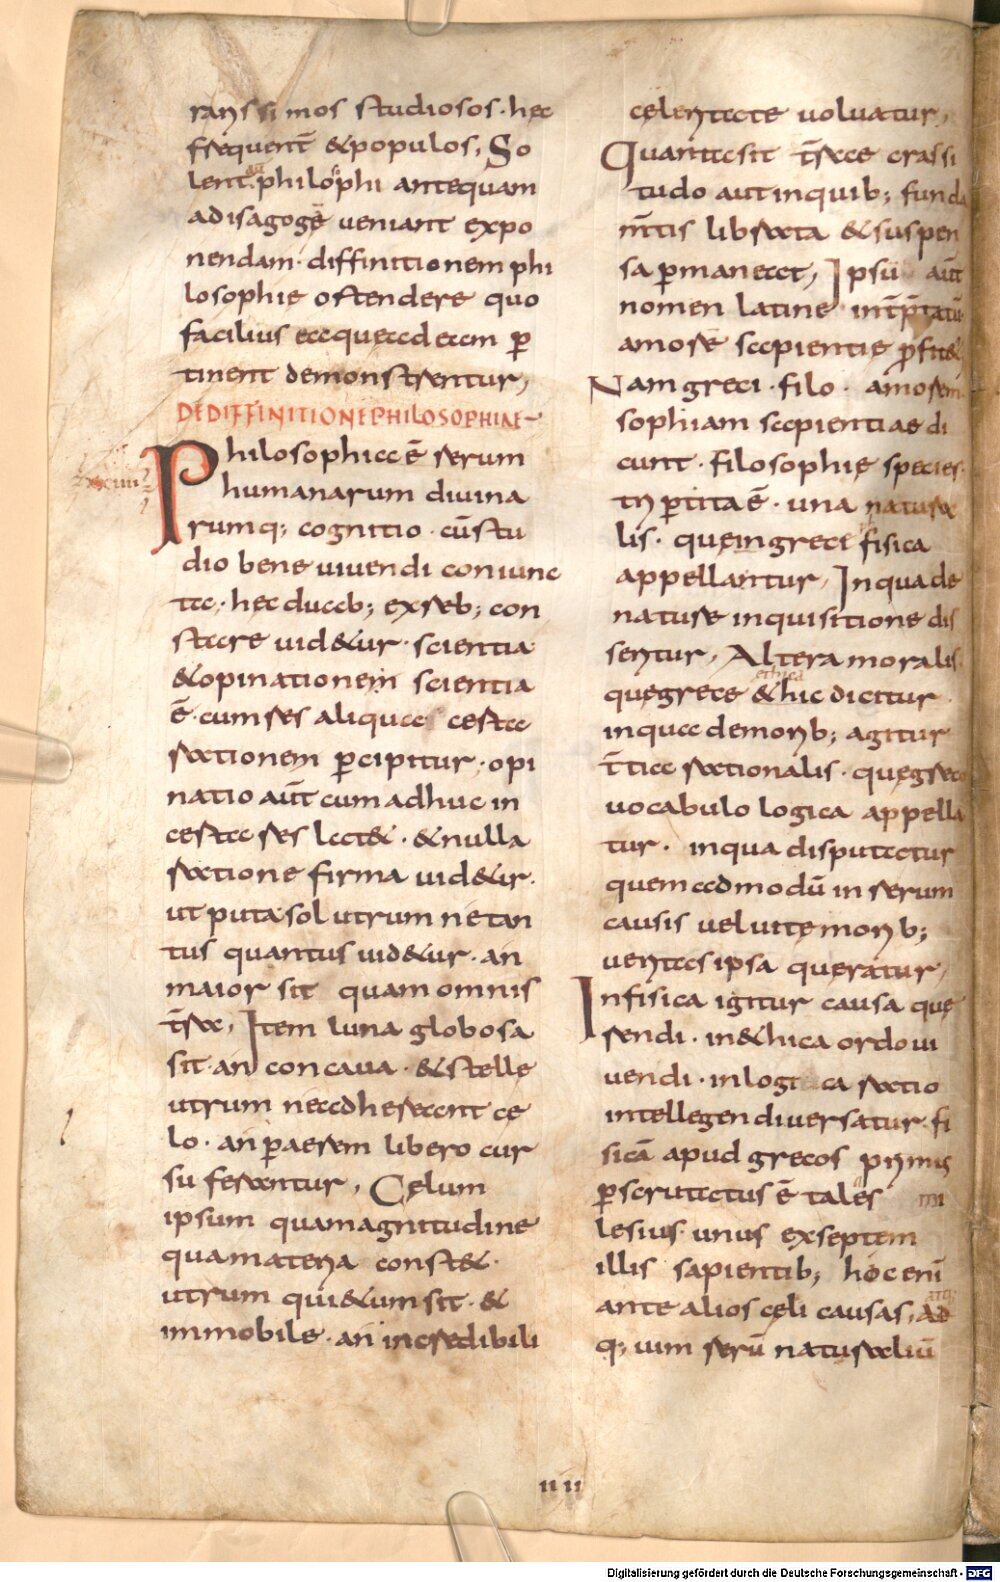 rarissimos studiosos · hec
frequent̄ &populos, So
lent aūt philosophi antequam
adisagogē ueniant expo
nendam · diffinitionem phi
losophię ostendere quo
facilius eaquaeadeam p̄
tinent demonstrentur,
DEDIFFINITIONEPHILOSOPHIAE
Philosophia ē rerum
humanarum diuina
rumq; cognitio · cūstu
dio bene uiuendi coniunc
ta · hęc duab; exreb; con
stare uid&ur · scientia
&opinationem scientia
ē · cumres aliqua certa
rationem p̄cipitur · opi
natio aūt cumadhuc in
certa res lat& · &nulla
ratione firma uid&ur ·
ut puta sol utrum ne tan
tus quantus uid&ur · an
maior sit quam omnis
t̄ra, Item luna globosa
sit · an concaua · &stelle
utrum neadhereant cę
lo · an p̄aerem libero cur
su ferantur, Cęlum
ipsum quamagnitudine
quamateria const& ·
utrum qui&umsit · &
immobile · an incredibili
cęleritate uoluatur,
Quantasit t̄rae crassi
tudo aut inquib; funda
m̄tis librata &suspen
sa p̄maneat, Ipsū aūt
nomen latine int̄p̄tatū
amorē sapientię p̄fit&
Nam greci · filo · amorem
sophiam sapientiae di
cunt · filosophię species
trip̄tita ē · una natura
lis · quęingrece fisica
appellantur, Inqua de
nature inquisitione dis
sertur, Altera moralis
ethica
quęgrece &hic dicitur
inqua demorib; agitur
t̄tia rationalis · quęgreco
uocabulo logica appella
tur · inqua disputatur
quemadmodū in rerum
causis uel uitę morib;
ueritas ipsa queratur,
Infisica igitur causa quę
rendi · in&hica ordo ui
uendi · inlogica ratio
intellegendi uersatur · fi
sicā apud grecos primus
p̄scrutatus ē tales mi
lesius · unus exseptem
illis sapientib; hoc enī
ante alios cęli causas, at
q; uim rerū naturaliū
11 11
Digitalisierung gefördert durch die Deutsche Forschungsgemeinschaft - DFG